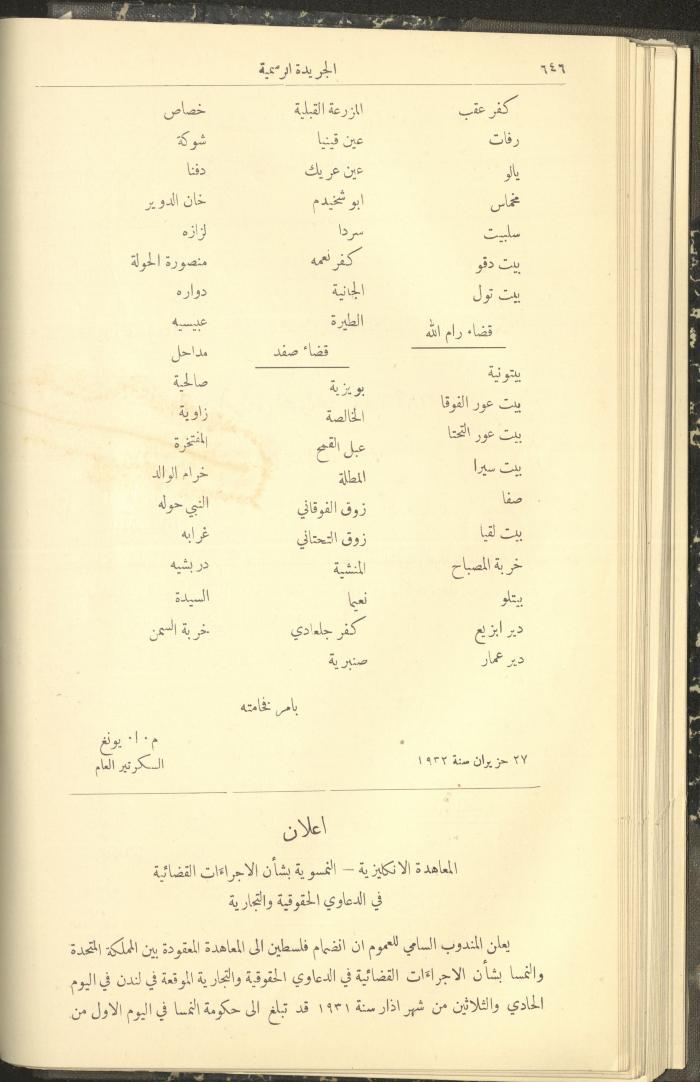 ٦٤٦
الجريدة الرسمية
كفر عقب
رفات
يالو
مخماس
سلبيت
بيت دقو
بيت تول
قضاء رام الله
بيتونية
بيت عور الفوقا
بيت عور التحتا
بيت سيرا
صفا
بيت لقيا
خربة المصباح
بيتلو
دير ابزيع
دير عمار
المزرعة القبلية
عين قينيا
عين عريك
ابو شخيدم
سردا
كفر نعمه
الجانية
الطيرة
قضاء صفد
بويزية
الخالصة
عبل القمح
المطلة
زوق الفوقاني
زوق التحتاني
المنشية
نعيما
كفر جلعادي
صنبرية
خصاص
شوكة
دفنا
خان الدوير
لزازه
منصورة الحولة
دواره
عبيسيه
مداحل
صالحية
زاوية
المفتخرة
خرام الوالد
النبي حوله
غرابه
دربشيه
السيدة
خربة السمن
بامر فخامته
م٠ا٠ يونغ
السكرتير العام
٢٧ حزيران سنة ١٩٣٢
اعلان
المعاهدة الانكليزية – النمسوية بشأن الاجراءات القضائية
في الدعاوي الحقوقية والتجارية
يعلن المندوب السامي للعموم ان انضمام فلسطين الى المعاهدة المعقودة بين المملكة المتحدة
والنمسا بشأن الاجراءات القضائية في الدعاوي الحقوقية والتجارية الموقعة في لندن في اليوم
الحادي والثلاثين من شهر اذار سنة ١٩٣١ قد تبلغ الى حكومة النمسا في اليوم الاول من